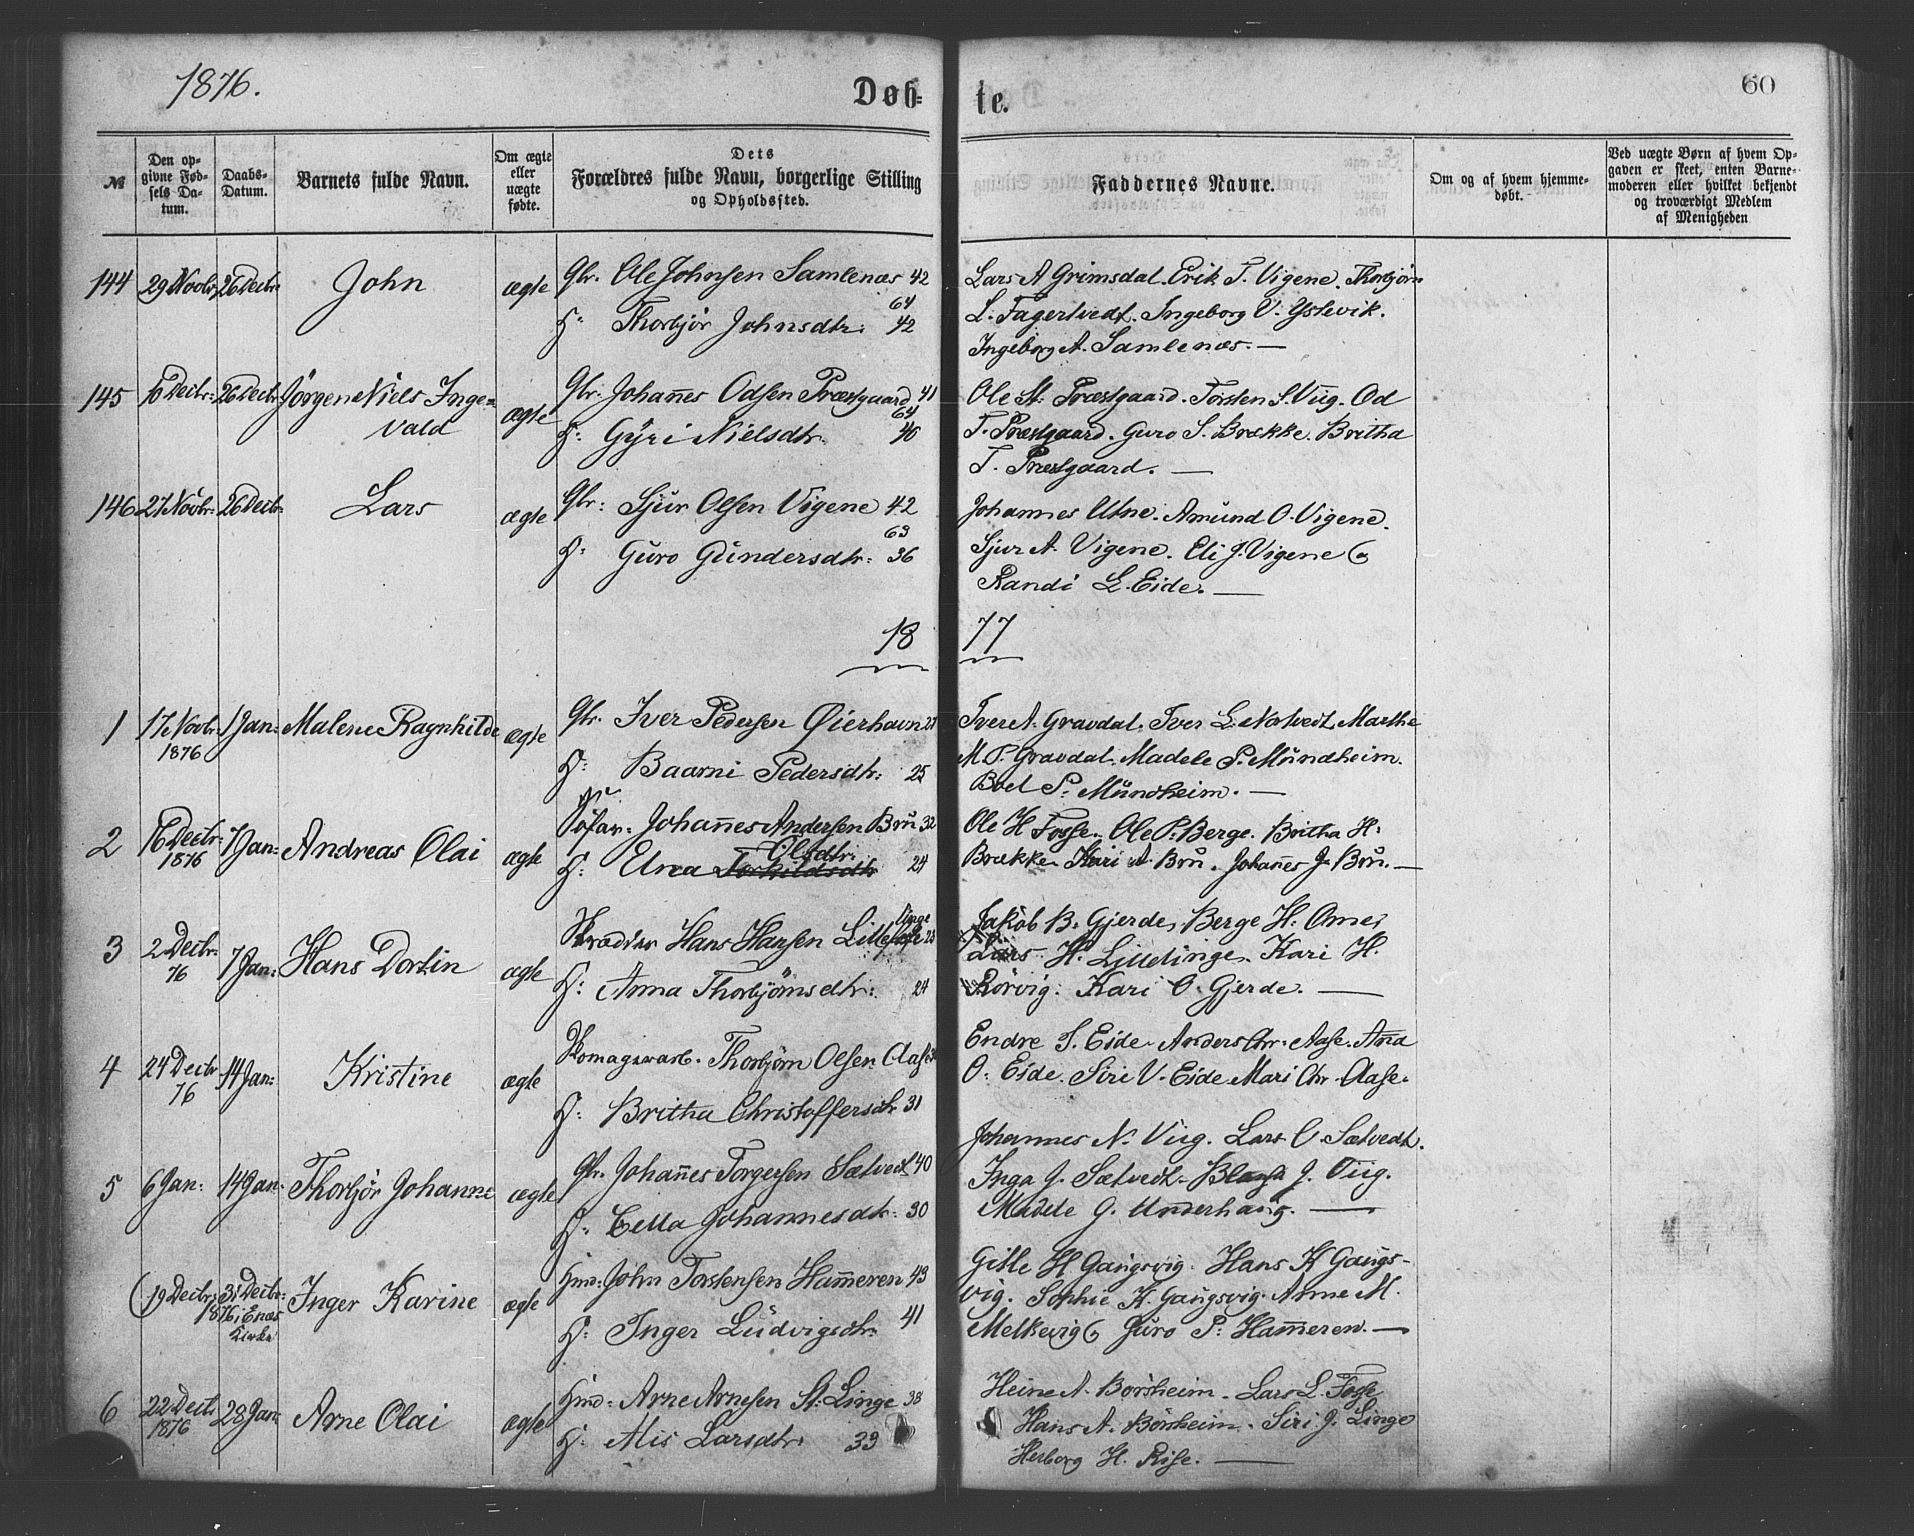 1876.
Døb- te.
60
№
Den op-
givne Fød-
sels Da-
tum.
Daabs-
Datum.
Barnets fulde Navn.
Om ægte
eller
uægte
fødte.
Dets
Forældres fulde Navn, borgerlige Stilling
og Opholdssted.
Faddernes Navne.
Om og af hvem hjemme-
døbt.
Ved uægte Børn af hvem Op-
gaven er skeet, enten Barne-
moderen eller hvilket bekjendt
og troværdigt Medlem
af Menigheden
144 29 Novbr. 26 Decbr. John ægte Gbr. Ole Johnsen Samlenæs 42
64
H: Thorbjør Johnsdtr. 42
Lars A Grimsdal. Erik T. Vigene. Thorbjørn
L. Fagertvedt. Ingeborg V. Ystevik.
Ingeborg A. Samlenæs. —
145 6 Decbr. 26 Decbr. Jörgen Niels Inge=
vald
ægte Gbr. Johannes Odsen Præstgaard 41
64
H: Gyri Nielsdtr. 40
Ole N: Præstgaard. Torsten S. Viig. Od
T. Præstgaard. Guro S. Brække. Britha
T. Præstgaard. —
146 27 Novbr. 26 Decbr. Lars ægte Gbr: Sjur Olsen Vigene 42
63
H: Guro Gundersdtr: 36
Johannes Utne. Amund O. Vigene.
Sjur A. Vigene. Eli J. Vigene &
Randi L. Eide. —
18 77
1 17 Novbr. 1876 1 Jan: Malene Ragnhilde ægte Gbr. Iver Pedersen Øierhavn 28
H: Baarni Pedersdtr: 25
Iver A. Gravdal. Iver L. Nortvedt. Marthe
M. P. Gravdal. Madele P. Mundheim.
Boel P. Mundheim. —
2 16 Decbr. 1876 7 Jan: Andreas Olai ægte Söfar. Johannes Andersen Bru 32
Olsdtr.
H: Elna Torkildsdtr 24
Ole H Fosse. Ole P. Berge. Britha H:
Brække. Kari A. Bru. Johannes J. Bru. —
3 2 Decbr. 76 7 Jan: Hans Dortin ægte Skrædder Hans Hansen Lille
linge 28
H: Anna Thorbjörnsdtr: 24
Jakob B. Gjerde, Berge H. Omes
Lars H. Lillelinge. Kari H.
Rörvig. Kari O. Gjerde. —
4 24 Decbr. 76 14 Jan: Kristine ægte Skomagersv. Thorbjørn Olsen Aase
H: Britha Christoffersdr 31
Endre S. Eide. Anders Chr. Aase. Anna
O. Eide. Siri V. Eide. Mari Chr. Aase.
5 6 Jan: 14 Jan: Thorbjør Johanne ægte Gbr. Johannes Torgersen Sætvedt 40
H: Cella Johannesdtr: 30
Johannes N. Viig. Lars O. Sætvedt.
Inga J. Sætvedt. J. Viig.
Madele G. Underhaug. —
19 Decbr. 31 Decbr. 1876 i Enæs
Kirke
Inger Karine ægte Hmd: John Torstensen Hammeren 43
H: Inger Ludvigsdr: 41
Gitle H Gaugsvig. Hans K Gaugs-
vig. Sophie K. Gaugsvig. Anne M.
Melkevig & Guro P: Hammeren. —
6 22 Decbr. 1876 28 Jan: Arne Olai ægte Hmd: Arne Arnesen St. Linge 38
H: Alis Larsdtr: 33
Heine A. Borsheim. Lars L. Fosse
Hans A. Börsheim. Siri J. Linge
Herborg H. Rise. —